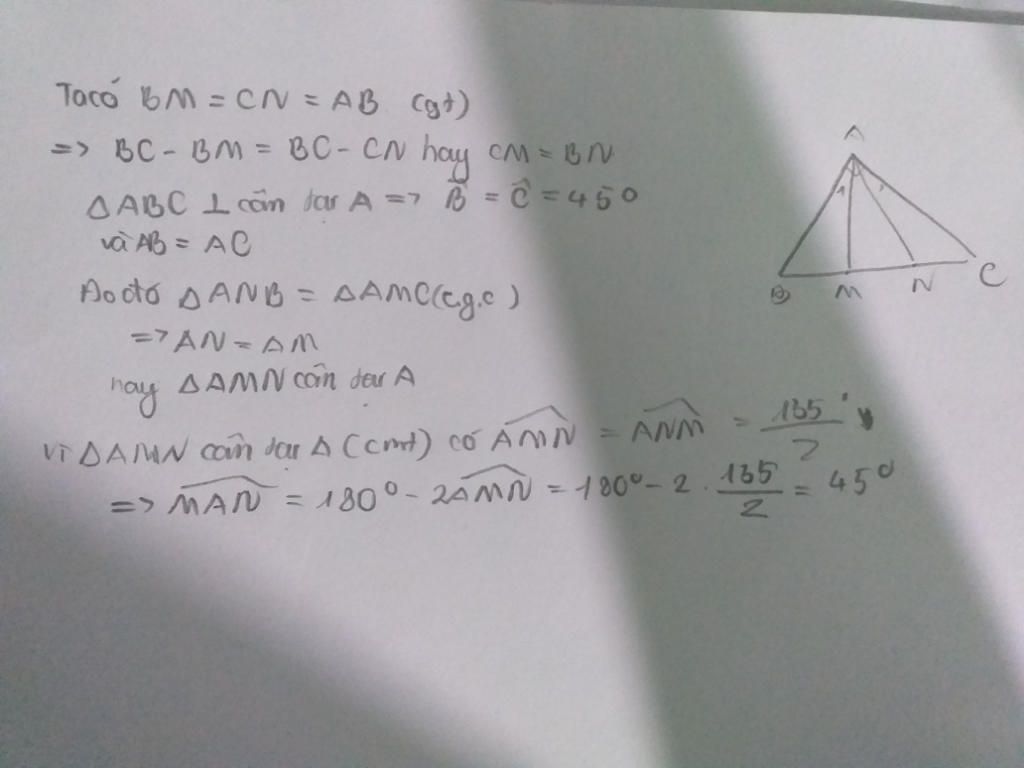 Ta có BM = CN = AB (gt)
=> BC - BM = BC - CN hay CM = BN
△ABC ⊥ cân tại A => B̂ = Ĉ = 45°
và AB = AC
Do đó △ANB = △AMC (c.g.c)
=> AN = AM
hay △AMN cân tại A
vì △AMN cân tại A (cmt) có \widehat{AMN} = \widehat{ANM} = \frac{135°}{2}
=> \widehat{MAN} = 180° - 2\widehat{AMN} = 180° - 2 . \frac{135}{2} = 45°
A
1
B M N C